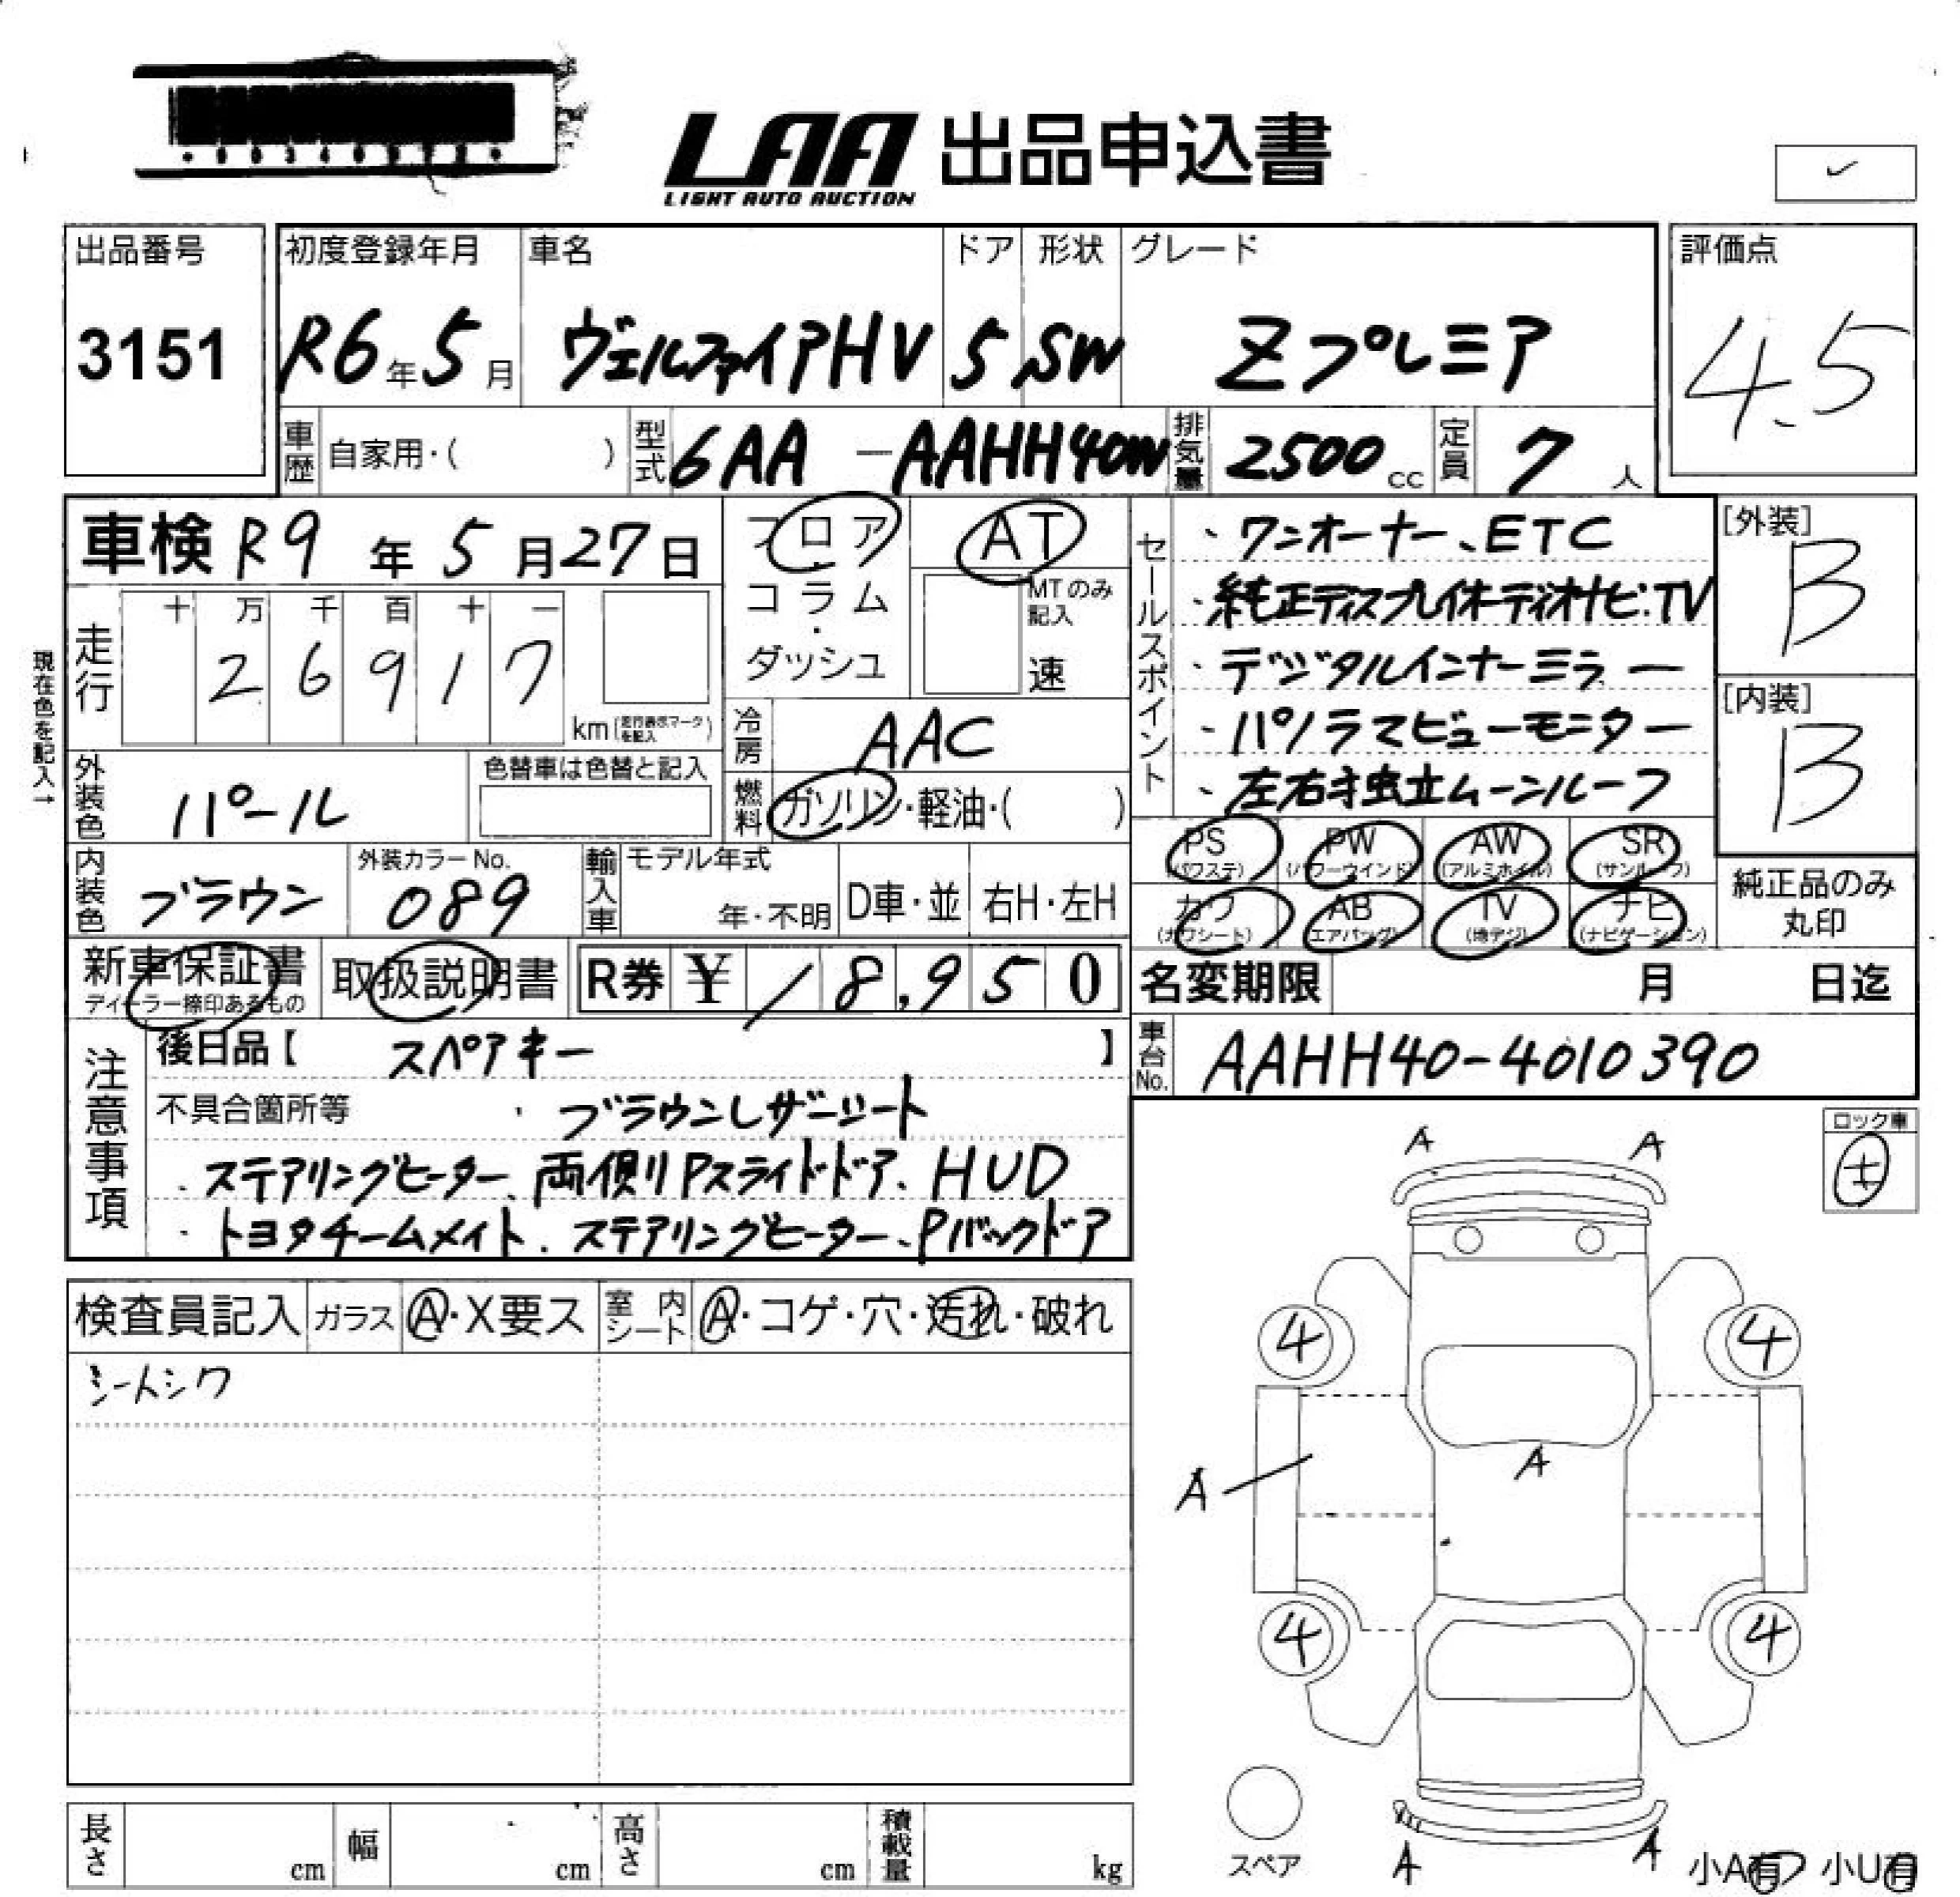 LAA 出品申込書
LIGHT AUTO AUCTION
出品番号
3151
初度登録年月
R6年5月
車名
ヴェルファイアHV
ドア
5
形状
SW
グレード
Zプレミア
評価点
4.5
車歴
自家用・( )
型式
6AA-AAHH40W
排気量
2500cc
定員
7人
車検 R9年5月27日
フロア・コラム・ダッシュ
AT
MTのみ記入
速
現在色を記入→
走行
十万千百十一
26917
km(走行表示マークを記入)
冷房
AAC
燃料
ガソリン・軽油・( )
外装色
パール
色替車は色替と記入
内装色
ブラウン
外装カラーNo.
089
輸入車
モデル年式
年・不明
D車・並
右H・左H
セールスポイント
・ワンオーナー、ETC
・純正ディスプレイオーディオナビ.TV
・デジタルインナーミラー
・パノラマビューモニター
・左右独立ムーンルーフ
[外装]
B
[内装]
B
PS (パワステ)
PW (パワーウインド)
AW (アルミホイル)
SR (サンルーフ)
カワ (カワシート)
AB (エアバッグ)
TV (地デジ)
ナビ (ナビゲーション)
純正品のみ丸印
新車保証書
ディーラー捺印あるもの
取扱説明書
R券 ¥18,950
名変期限 月 日迄
車台No.
AAHH40-4010390
注意事項
後日品【 スペアキー 】
不具合箇所等 ・ブラウンレザーシート
・ステアリングヒーター、両側Pスライドドア、HUD
・トヨタチームメイト、ステアリングヒーター、Pバックドア
ロック車
検査員記入
ガラス
A・X要ス
室内シート
A・コゲ・穴・汚れ・破れ
シートシワ
A
A
4
4
A
A
4
4
スペア
A
A
小A有 小U有
長さ cm
幅 cm
高さ cm
積載量 kg